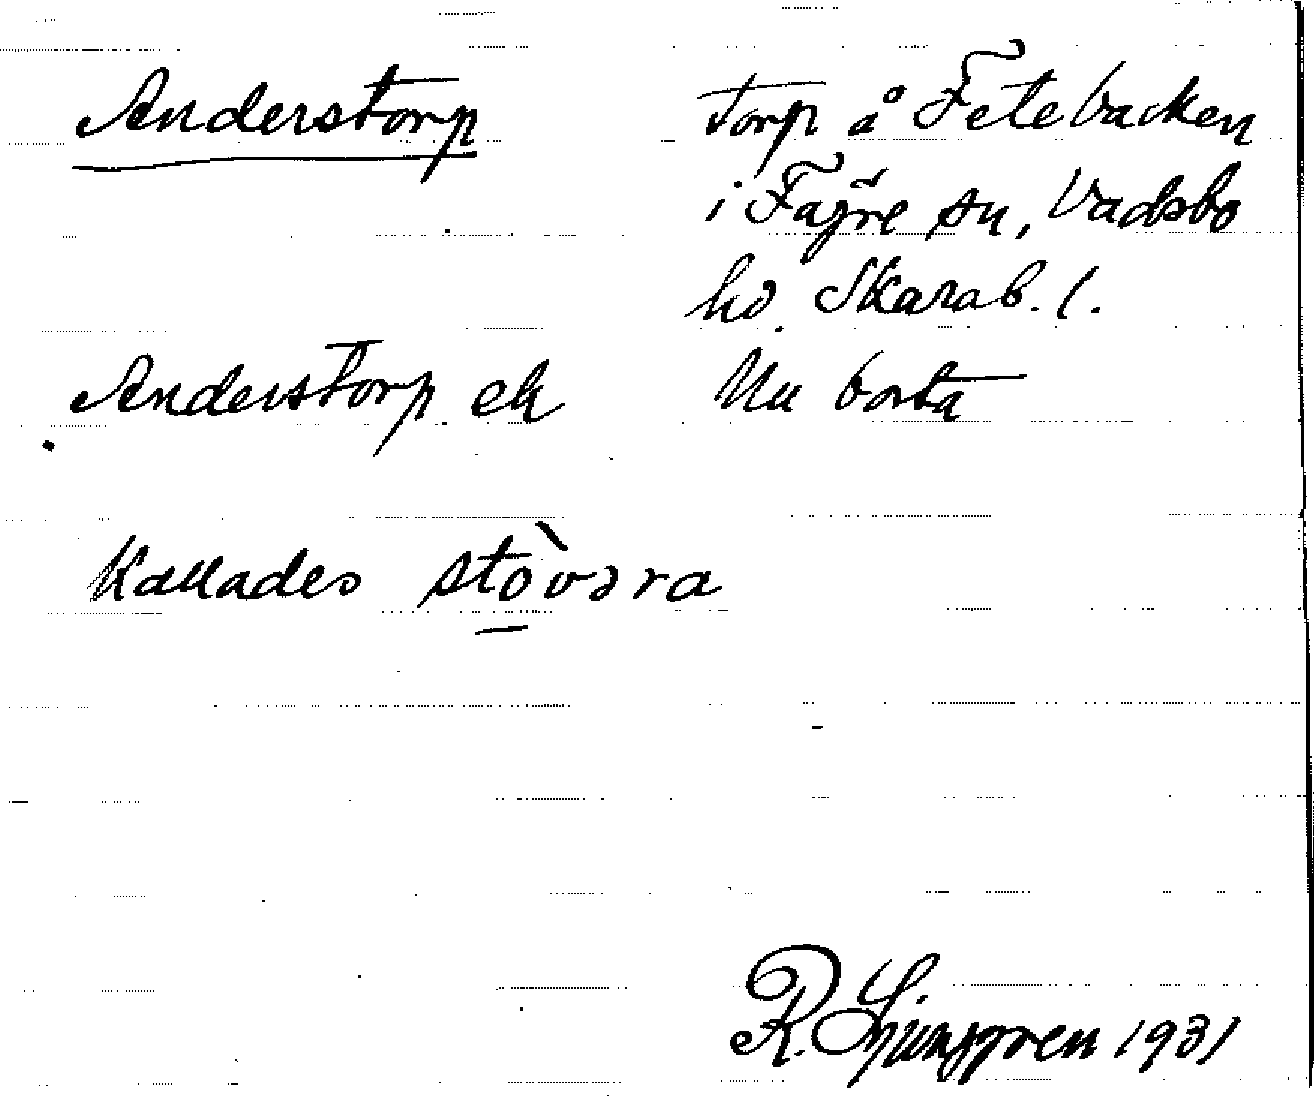 Anderstorp
Torp å Fetebacken
i Fägre sn, Vadsbo
hd. Skarab. l.
Anderstorp ek
Nu borta
Kallades stòvəra
R. Ljunggren 1931